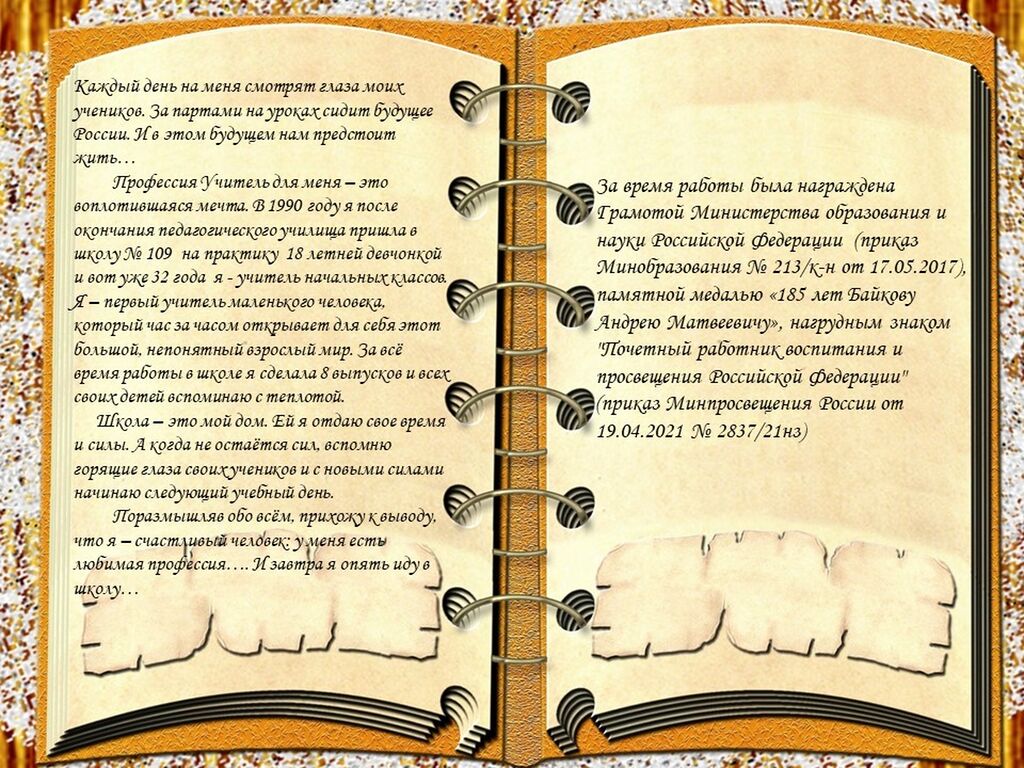 Каждый день на меня смотрят глаза моих
учеников. За партами на уроках сидит будущее
России. И в этом будущем нам предстоит
жить…
Профессия Учитель для меня – это
воплотившаяся мечта. В 1990 году я после
окончания педагогического училища пришла в
школу № 109 на практику 18 летней девчонкой
и вот уже 32 года я - учитель начальных классов.
Я – первый учитель маленького человека,
который час за часом открывает для себя этот
большой, непонятный взрослый мир. За всё
время работы в школе я сделала 8 выпусков и всех
своих детей вспоминаю с теплотой.
Школа – это мой дом. Ей я отдаю свое время
и силы. А когда не остаётся сил, вспомню
горящие глаза своих учеников и с новыми силами
начинаю следующий учебный день.
Поразмышляв обо всём, прихожу к выводу,
что я – счастливый человек: у меня есть
любимая профессия…. И завтра я опять иду в
школу…
За время работы была награждена
Грамотой Министерства образования и
науки Российской Федерации (приказ
Минобразования № 213/к-н от 17.05.2017),
памятной медалью «185 лет Байкову
Андрею Матвеевичу», нагрудным знаком
"Почетный работник воспитания и
просвещения Российской Федерации"
(приказ Минпросвещения России от
19.04.2021 № 2837/21нз)